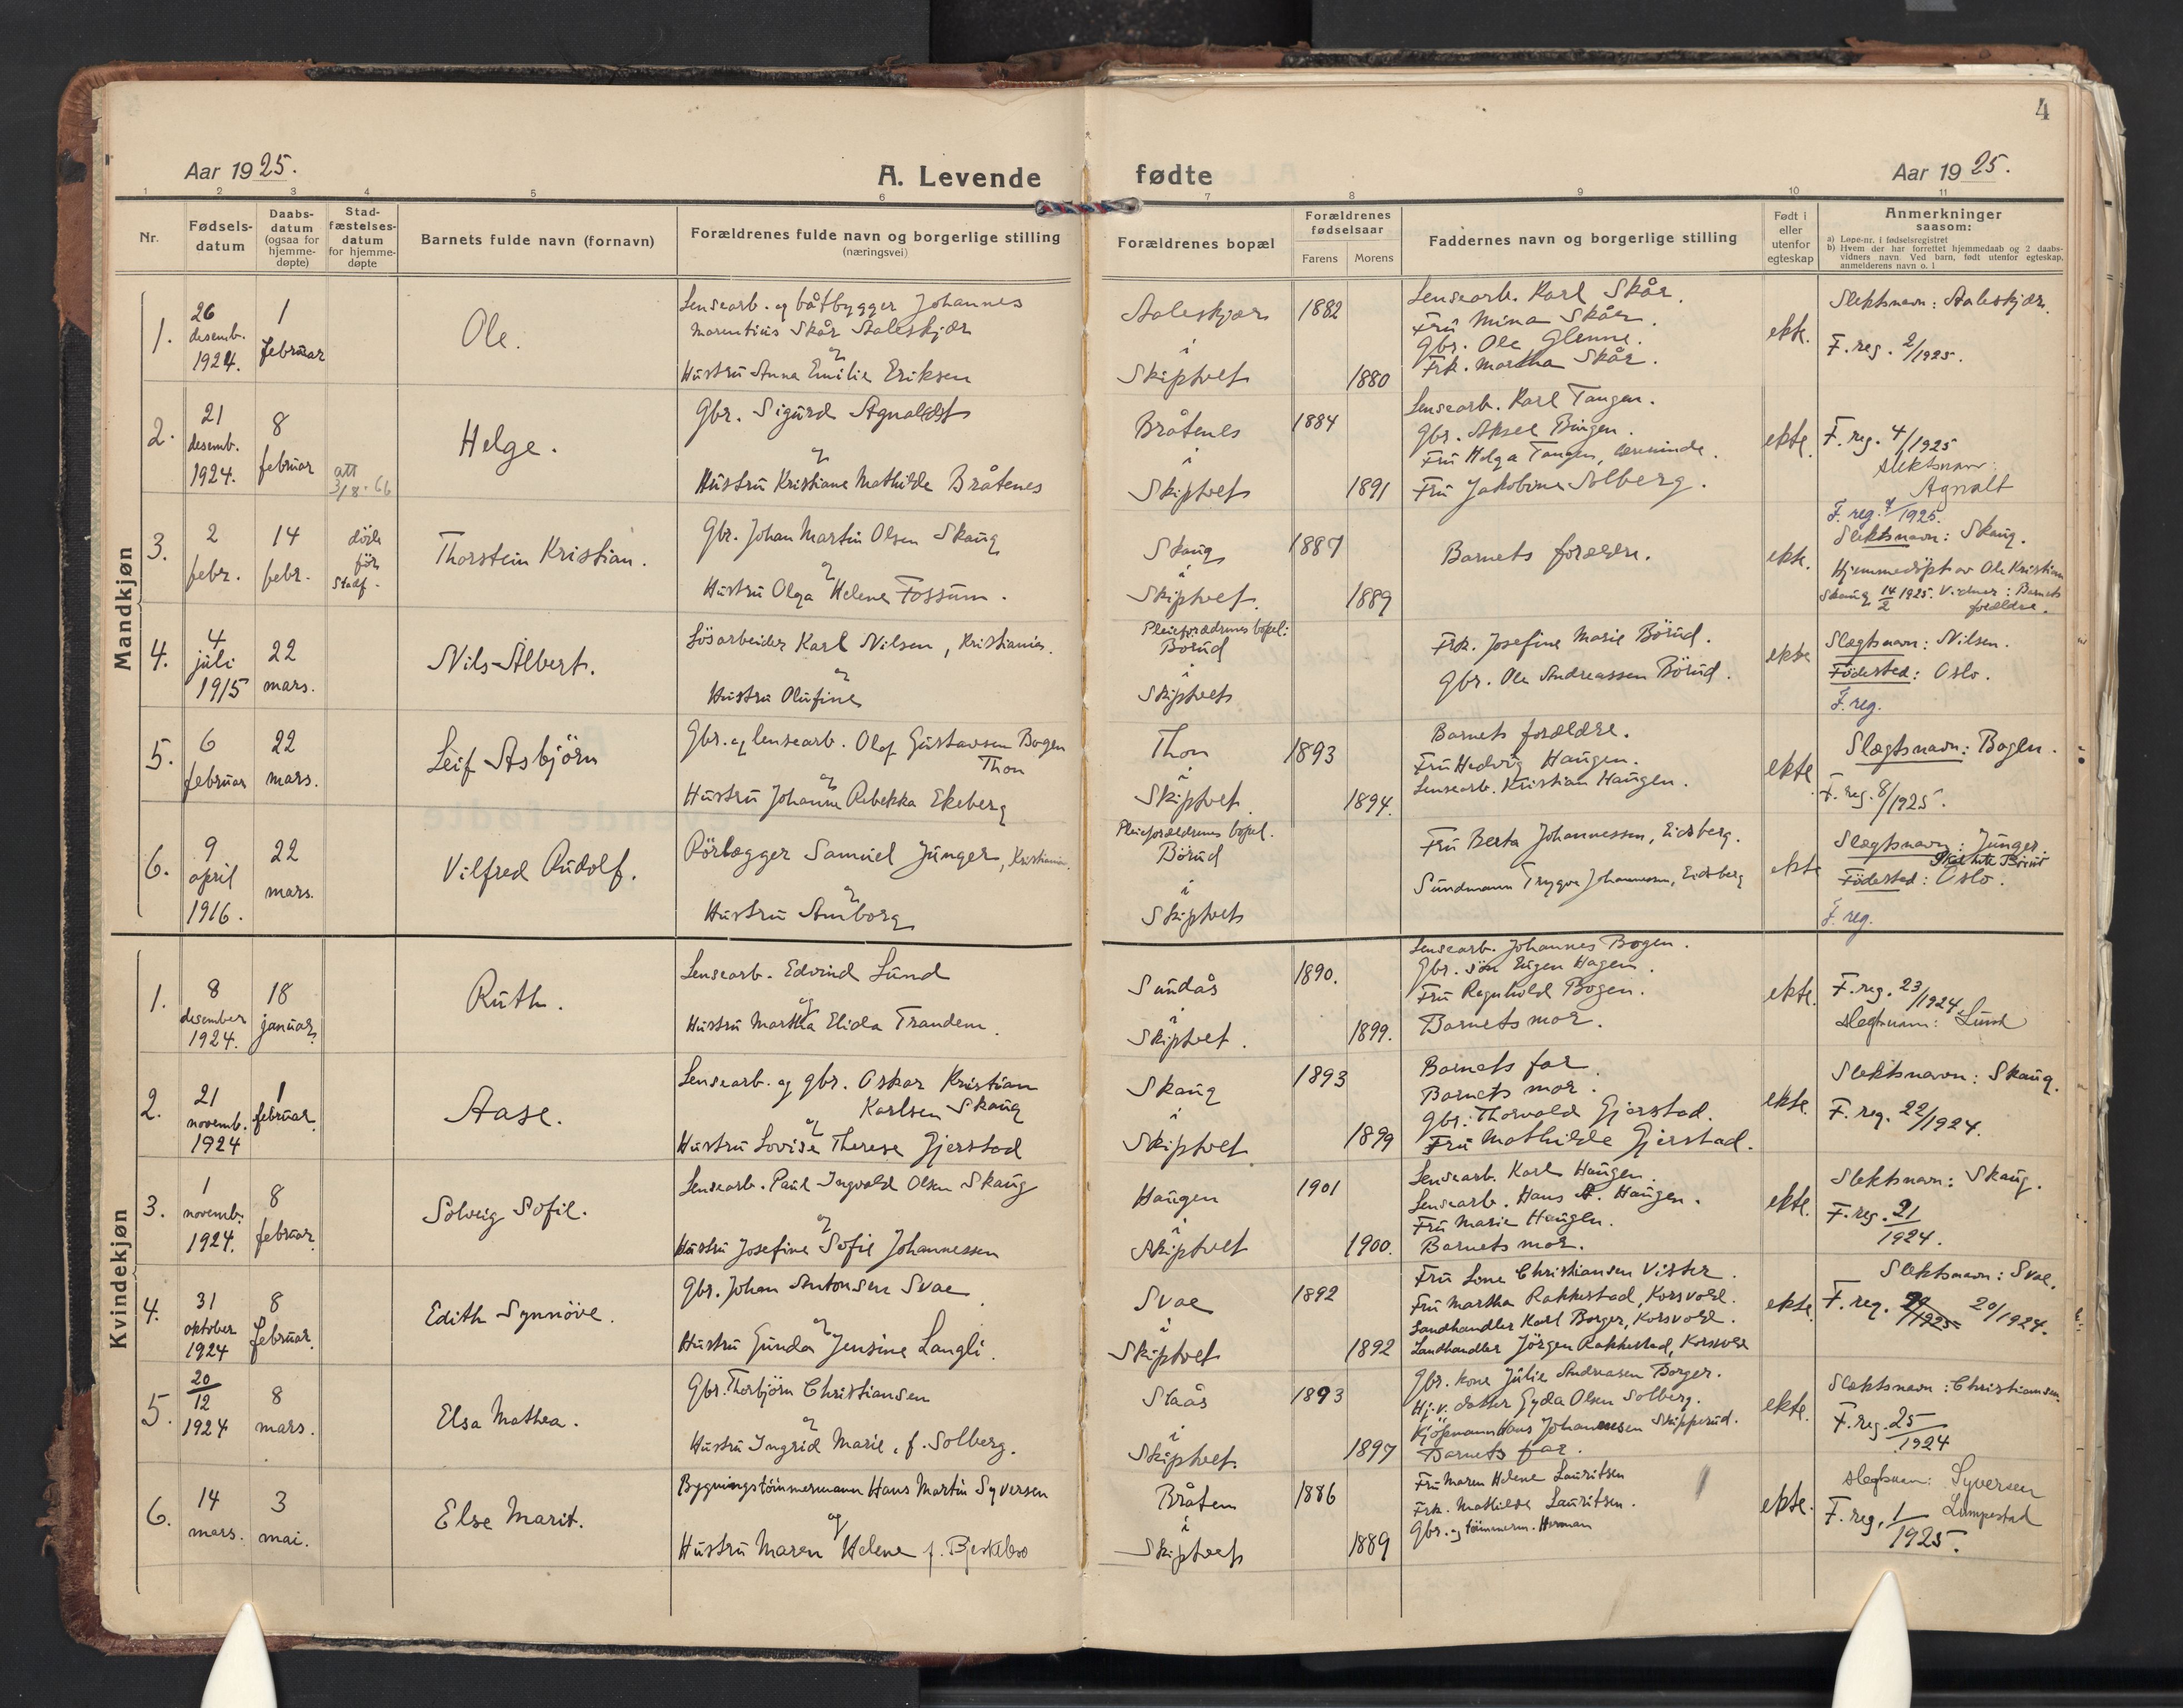 4
Aar 1925.
A. Levende fødte
Aar 1925.
1 2 3 4 5 6 7 8 9 10 11
Nr.
Fødselsdatum
Daabsdatum (ogsaa for hjemmedøpte)
Stadfæstelsesdatum for hjemmedøpte
Barnets fulde navn (fornavn)
Forældrenes fulde navn og borgerlige stilling
(næringsvei)
Forældrenes bopæl
Forældrenes fødselsaar
Farens Morens
Faddernes navn og borgerlige stilling
Født i eller utenfor egteskap
Anmerkninger
saasom:
a) Løpe-nr. i fødselsregistret
b) Hvem der har forrettet hjemmedaab og 2 daabsvidners navn. Ved barn, født utenfor egteskap, anmelderens navn o. l
Mandkjøn
1.
26 desemb. 1924.
1 februar
Ole.
Lensearb. og båtbygger Johannes
Marentius Skår Aaleskjær
og
Hustru Anna Emilie Eriksen
Aaleskjær
i
Skiptvet
1882
1880
Lensearb. Karl Skår.
Fru Mina Skår.
Gbr. Ole Glenne.
Frk. Martha Skår.
ekte.
Slektsnavn: Aaleskjær.
F. reg. 2/1925.
2.
21 desemb. 1924.
8 februar
att 3/8-66
Helge.
Gbr. Sigurd Agnaldt
og
Hustru Kristiane Mathilde Bråtenes
Bråtenes
i
Skiptvet
1884
1891
Lensearb. Karl Tangen.
Gbr. Aksel Bingen.
Fru Helga Tangen, lærerinde.
Fru Jakobine Solberg.
ekte.
F. reg. 4/1925
slektsnavn
Agnalt
3.
2 febr.
14 febr.
döde för Stadf.
Thorstein Kristian.
Gbr. Johan Martin Olsen Skaug
og
Hustru Olga Helene Fossum.
Skaug
i
Skiptvet.
1887
1889
Barnets forældre.
ekte.
F. reg. 7/1925.
Slektsnavn: Skaug.
Hjemmedöpt av Ole Kristian
Skaug 14/2 1925. Vidner: Barnets
forældre.
4.
4 juli 1915
22 mars.
Nils-Albert.
Lösarbeider Karl Nilsen, Kristiania.
og
Hustru Olufine
Pleieforældrenes bopel:
Börud
i
Skiptvet
Frk. Josefine Marie Börud.
Gbr. Ole Andreassen Börud.
ekte
Slægtsnavn: Nilsen.
Födested: Oslo.
F. reg.
5.
6 februar
22 mars.
Leif Asbjörn
Gbr. og lensearb. Olaf Gustavsen Bogen
Thon
og
Hustru Johanne Rebekka Ekeberg
Thon
i
Skiptvet.
1893
1894.
Barnets forældre.
Fru Hedvig Haugen.
Lensearb. Kristian Haugen.
ekte
Slægtsnavn: Bogen.
F. reg. 8/1925.
6.
9 april 1916.
22 mars.
Vilfred Rudolf.
Rörlægger Samuel Junger, Kristiania.
og
Hustru Amborg
Pleieforældrenes bopel.
Börud
i
Skiptvet
Fru Berta Johannessen, Eidsberg.
Sundmann Trygve Johannessen, Eidsberg
ekte
Slægtsnavn: Junger.
Skal hete Börud
Födested: Oslo.
F. reg.
Kvindekjøn
1.
8 desember 1924.
18 januar.
Ruth.
Lensearb. Edvind Lund
og
Hustru Martha Elida Trandem.
Sundås
i
Skiptvet.
1890.
1899.
Lensearb. Johannes Bogen.
Gbr. sön Eugen Hagen.
Fru Regnhold Bogen.
Barnets mor.
ekte.
F. reg. 23/1924.
slegtsnavn: Lund
2.
21 novemb. 1924
1 februar.
Aase.
Lensearb. og gbr. Oskar Kristian
Karlsen Skaug
og
Hustru Lovise Therese Gjerstad
Skaug
i
Skiptvet
1893
1899
Barnets far.
Barnets mor.
Gbr. Thorvald Gjerstad.
Fru Mathilde Gjerstad.
ekte.
Slektsnavn: Skaug.
F. reg. 22/1924.
3.
1 novemb. 1924.
8 februar.
Solveig Sofie.
Lensearb. Paul Ingvald Olsen Skaug
og
Hustru Josefine Sofie Johannessen
Haugen
i
Skiptvet
1901
1900.
Lensearb. Karl Haugen.
Lensearb. Hans A. Haugen.
Fru Marie Haugen.
Barnets mor.
ekte.
Slektsnavn: Skaug.
F. reg. 21/1924.
4.
31 oktober 1924
8 februar.
Edith Synnöve.
Gbr. Johan Antonsen Svae
og
Hustru Gunda Jensine Langli.
Svae
i
Skiptvet
1892
1892
Fru Lone Christiansen Vister.
Fru Martha Rakkestad, Korsvold.
Landhandler Karl Borger, Korsvold.
Landhandler Jörgen Rakkestad, Korsvold
ekte.
Slektsnavn: Svae.
F. reg. 20/1924.
5.
20/12 1924
8 mars.
Elsa Mathea.
Gbr. Thorbjörn Christiansen
og
Hustru Ingrid Marie, f. Solberg.
Staås
i
Skiptvet.
1893
1897
Gbr. kone Julie Andreasen Borger.
Hj.v. datter Gyda Olsen Solberg.
Kjöpmann Hans Johannesen Skipperud.
Barnets far.
ekte.
Slektsnavn: Christiansen.
F. reg. 25/1924
6.
14 mars.
3 mai.
Else Marit.
Bygningstömmermann Hans Martin Syversen
og
Hustru Maren Helene f. Bjerkebo
Bråten
i
Skiptvet
1886
1889
Fru Maren Helene Lauritsen
Frk. Mathilde Lauritsen.
Gbr. og tömmerm. Herman
ekte.
slegtsnavn: Syversen
Lumpestad
F. reg. 1/1925.